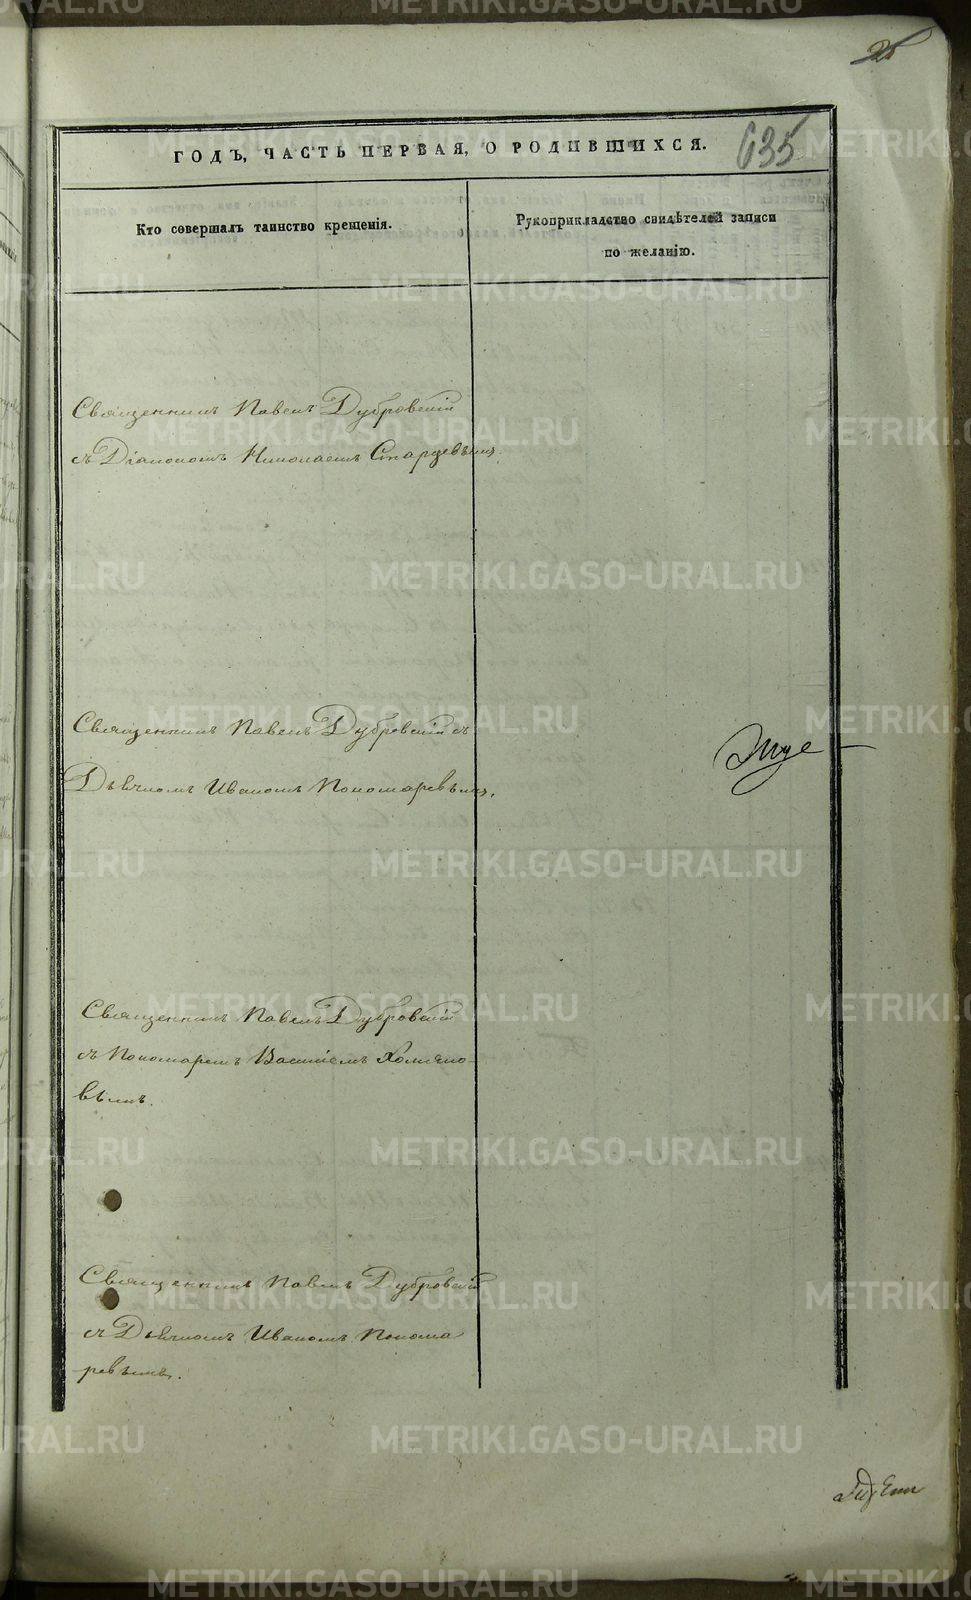 635
ГОДЪ, ЧАСТЬ ПЕРВАЯ, О РОДИВШИХСЯ.
Кто совершалъ таинство крещенія.
Рукоприкладство свидѣтелей записи
по желанію.
Священникъ Павелъ Дубровскій
съ Діакономъ Николаемъ Старцевымъ.
Священникъ Павелъ Дубровскій съ
Дьячкомъ Иваномъ Пономаревымъ.
Священникъ Павелъ Дубровскій
съ Пономаремъ Василіемъ Хомяко-
вымъ.
Священникъ Павелъ Дубровскій
съ Дьячкомъ Иваномъ Понома
ревымъ.
METRIKI.GASO-URAL.RU